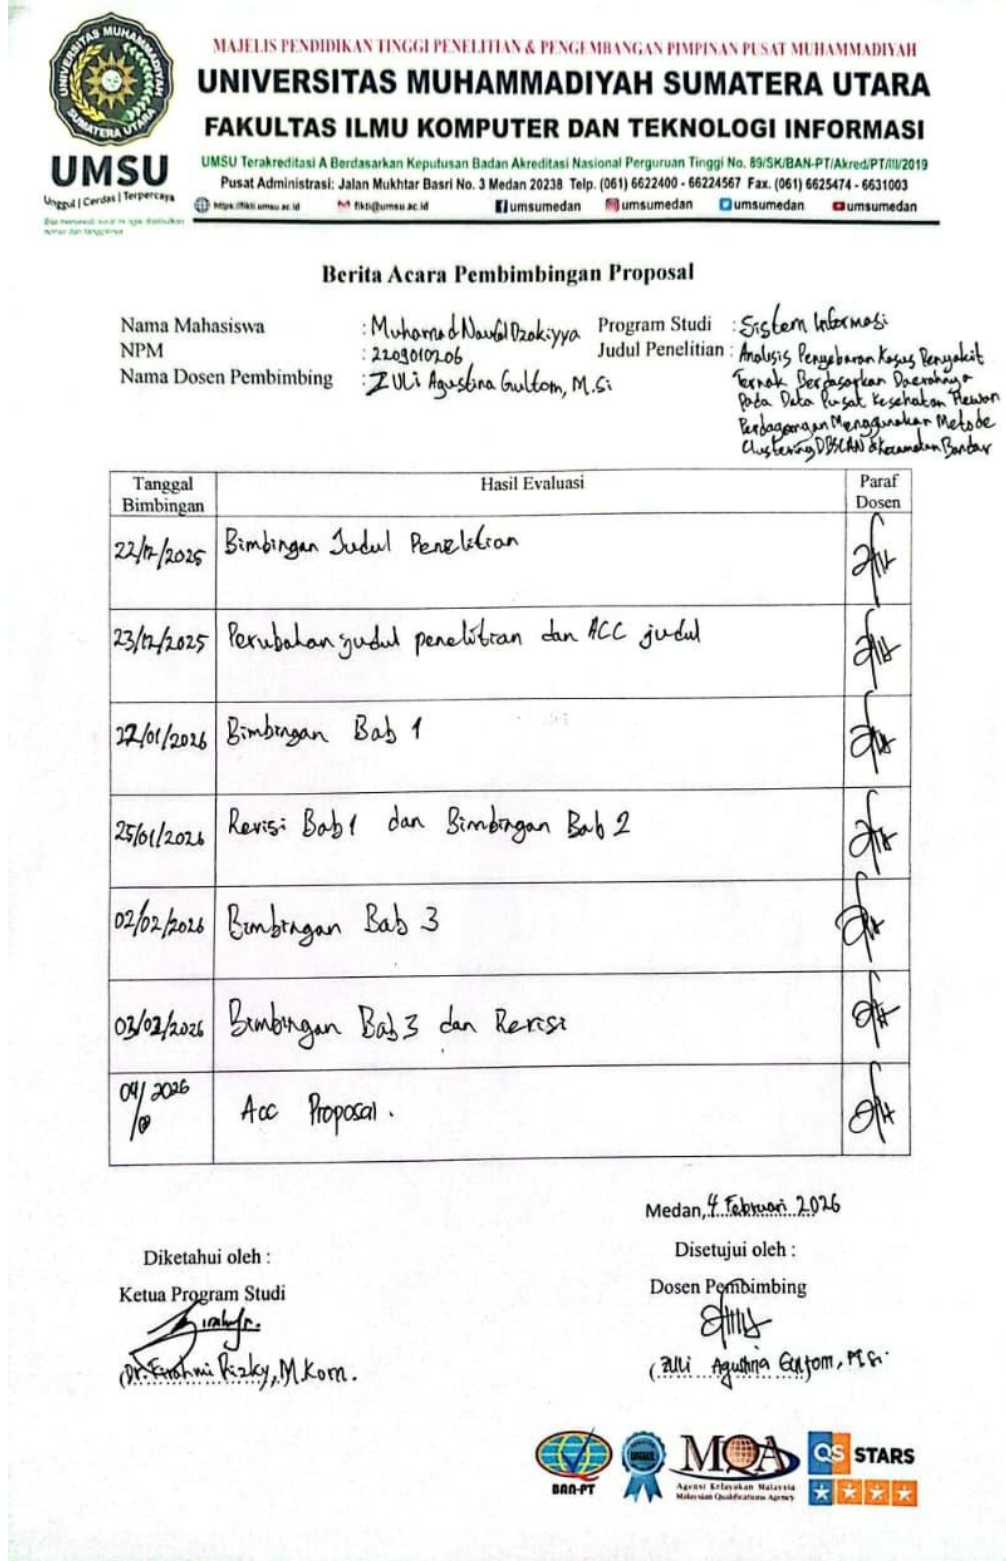 MAJELIS PENDIDIKAN TINGGI PENELITIAN & PENGEMBANGAN PIMPINAN PUSAT MUHAMMADIYAH
UNIVERSITAS MUHAMMADIYAH SUMATERA UTARA
FAKULTAS ILMU KOMPUTER DAN TEKNOLOGI INFORMASI
UMSU Terakreditasi A Berdasarkan Keputusan Badan Akreditasi Nasional Perguruan Tinggi No. 89/SK/BAN-PT/Akred/PT/III/2019
Pusat Administrasi: Jalan Mukhtar Basri No. 3 Medan 20238 Telp. (061) 6622400 - 66224567 Fax. (061) 6625474 - 6631003
https://fikti.umsu.ac.id fikti@umsu.ac.id umsumedan umsumedan umsumedan umsumedan
UNIVERSITAS MUHAMMADIYAH
SUMATERA UTARA
UMSU
Unggul | Cerdas | Terpercaya
Berita Acara Pembimbingan Proposal
Nama Mahasiswa : Muhamad Naufal Dzakiyya
NPM : 2209010206
Nama Dosen Pembimbing : Zuli Agustina Gultom, M.Si
Program Studi : Sistem Informasi
Judul Penelitian : Analisis Penyebaran Kasus Penyakit
Ternak Berdasarkan Daerahnya
Pada Data Pusat Kesehatan Hewan
Perdagangan Menggunakan Metode
Clustering DBSCAN di Kecamatan Bandar
Tanggal Bimbingan Hasil Evaluasi Paraf Dosen
22/12/2025 Bimbingan Judul Penelitian
23/12/2025 Perubahan judul penelitian dan ACC judul
22/01/2026 Bimbingan Bab 1
25/01/2026 Revisi Bab 1 dan Bimbingan Bab 2
02/02/2026 Bimbingan Bab 3
03/02/2026 Bimbingan Bab 3 dan Revisi
04/ 2026 Acc Proposal.
Medan, 4 Februari 2026
Diketahui oleh :
Disetujui oleh :
Ketua Program Studi
Dosen Pembimbing
Dr. Firahmi Rizky, M.Kom.
(Zuli Agustina Gultom, M.Si.
BAN-PT
MQA
Agensi Kelayakan Malaysia
Malaysian Qualifications Agency
QS STARS